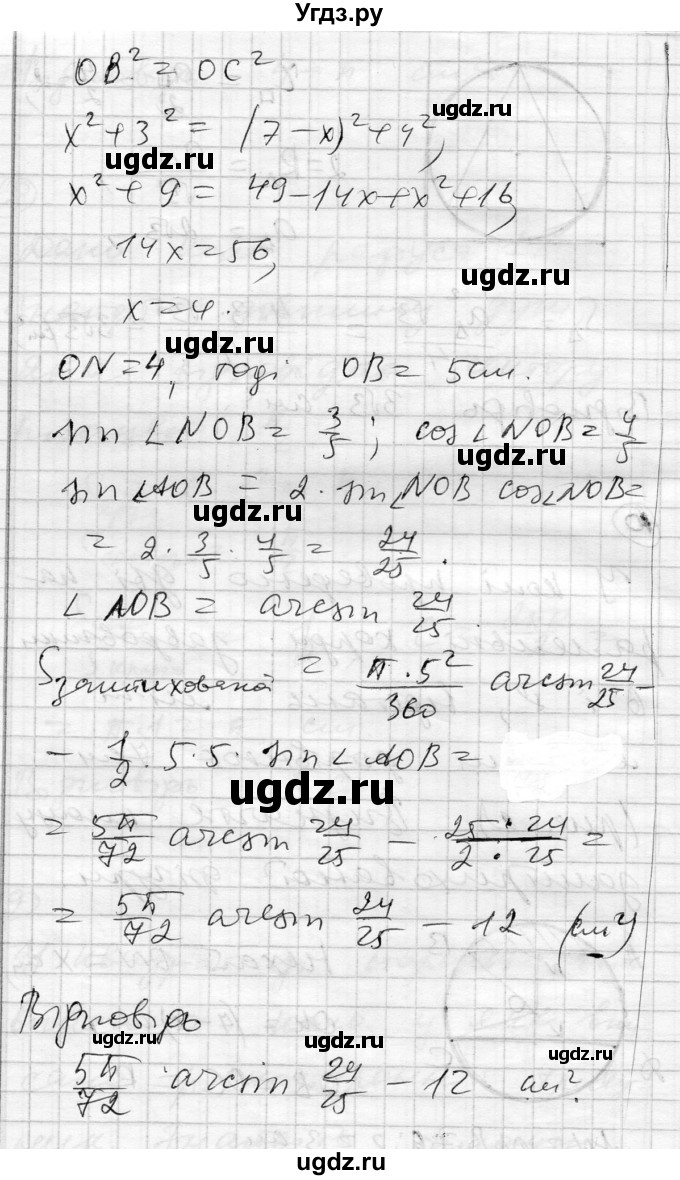 Угдз.ру
OB² = OC²
x² + 3² = (7 − x)² + 4²,
ugdz.ru
ugdz.ru
x² + 9 = 49 − 14x + x² + 16,
14x = 56,
ugdz.ru
x = 4.
ugdz.ru
ON = 4, тоді OB = 5 см.
sin ∠NOB = 3/5; cos ∠NOB = 4/5
ugdz.ru
sin ∠AOB = 2 · sin ∠NOB cos ∠NOB =
ugdz.ru
= 2 · 3/5 · 4/5 = 24/25.
∠AOB = arcsin 24/25.
ugdz.ru
Sзаштрихованої = π · 5²/360 arcsin 24/25 −
ugdz.ru
− 1/2 · 5 · 5 · sin ∠AOB =
ugdz.ru
= 5π/72 arcsin 24/25 − 25 · 24/2 · 25 =
= 5π/72 arcsin 24/25 − 12 (см²)
ugdz.ru
Відповідь
ugdz.ru
ugdz.ru
ugdz.ru
5π/72 arcsin 24/25 − 12 см².
ugdz.ru
ugdz.ru
ugdz.ru